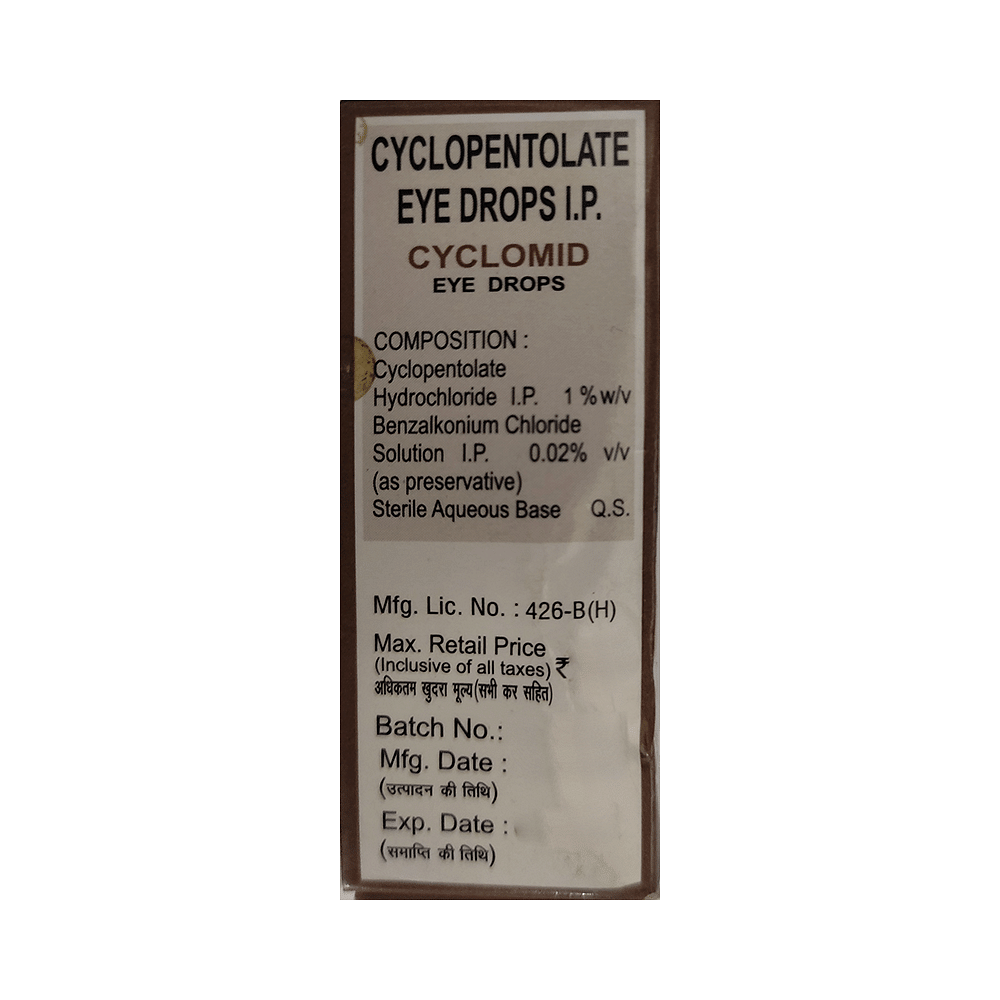 CYCLOPENTOLATE
EYE DROPS I.P.
CYCLOMID
EYE DROPS
COMPOSITION :
Cyclopentolate
Hydrochloride I.P. 1 % w/v
Benzalkonium Chloride
Solution I.P. 0.02% v/v
(as preservative)
Sterile Aqueous Base Q.S.
Mfg. Lic. No. : 426-B(H)
Max. Retail Price
(Inclusive of all taxes) ₹
अधिकतम खुदरा मूल्य (सभी कर सहित)
Batch No.:
Mfg. Date :
(उत्पादन की तिथि)
Exp. Date :
(समाप्ति की तिथि)